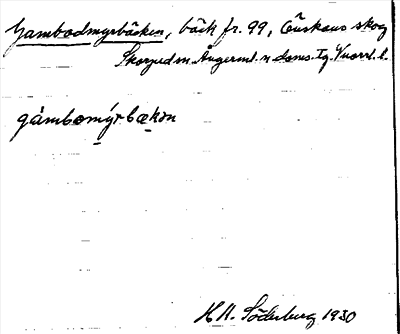 Gambodmyrbäcken, bäck fr. 99, Öuskaus skog
Skorped sn. Ångerml. n. doms. tg. Vnorrl. l.
gámbomýrbækən
H. H. Söderberg 1930